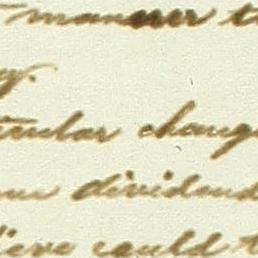 manner t
y.
ticular chang
dividend
lieve could t